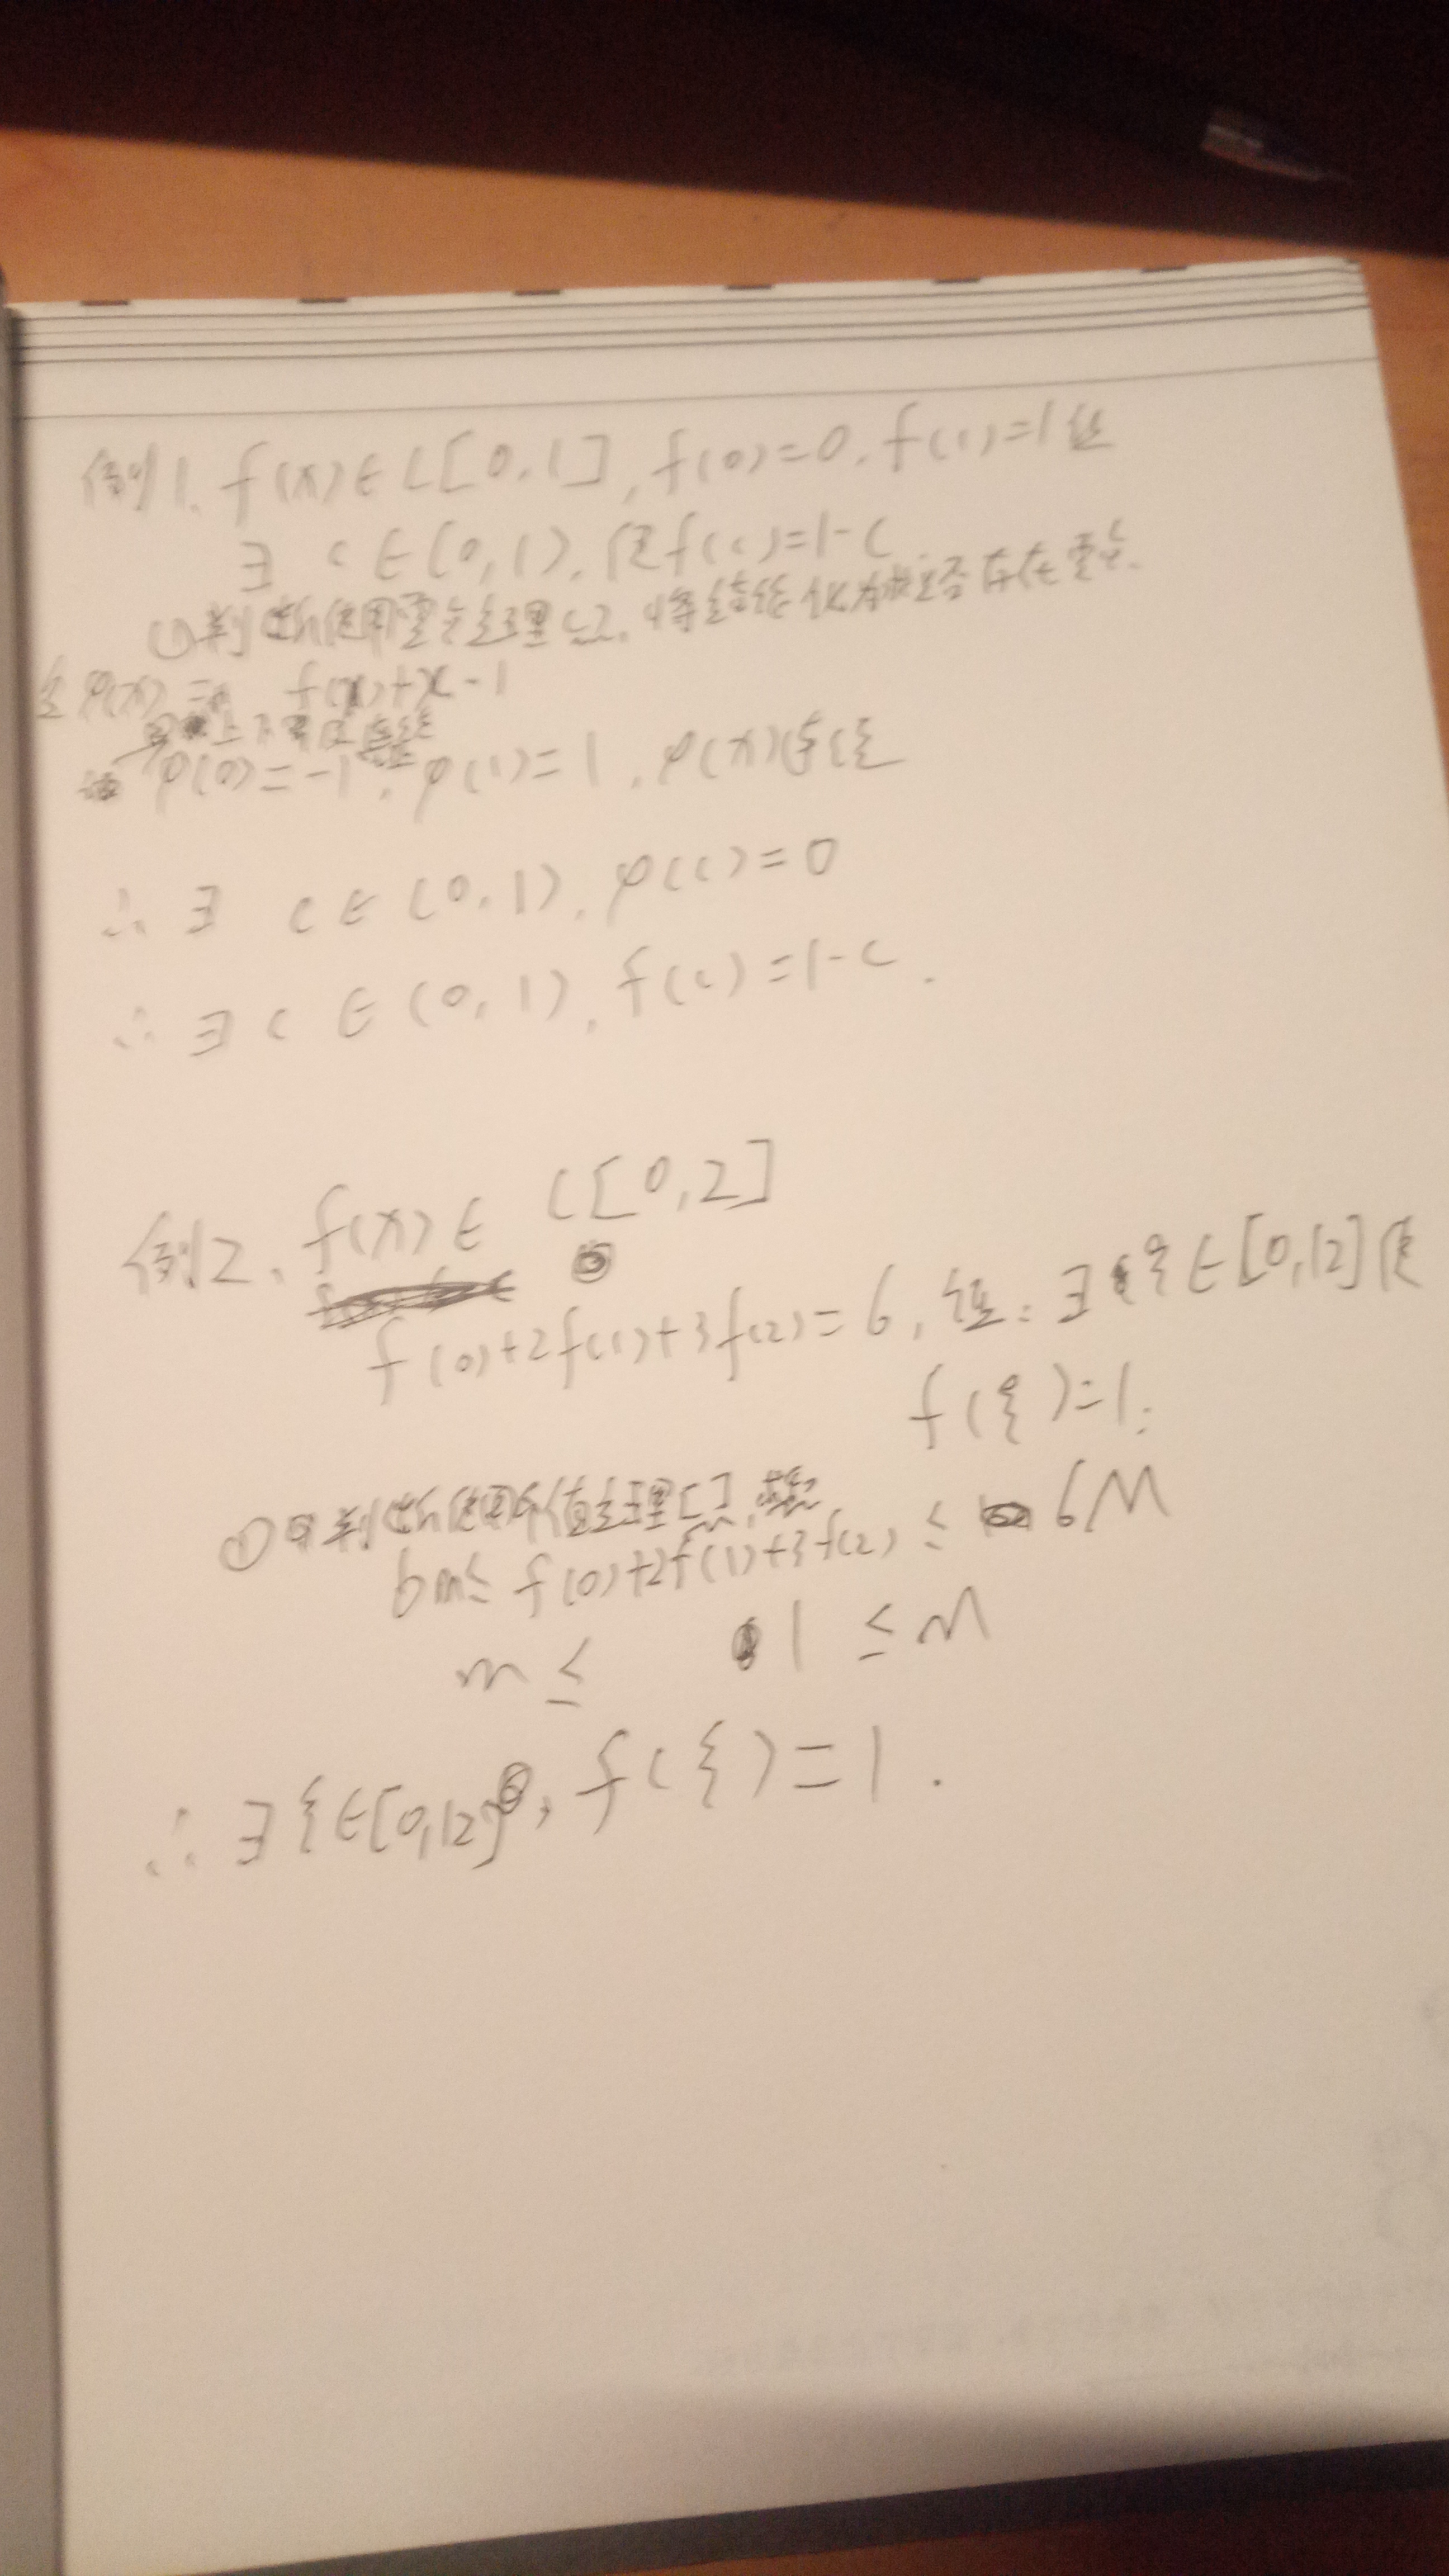 例1. f(x)∈C[0,1], f(0)=0. f(1)=1 证
∃ c∈(0,1). 使f(c)=1-c
①判断使用零点定理, 将结论化为是否存在零点.
令φ(x)= f(x)+x-1
φ(0)=-1, φ(1)=1, φ(x)连续
∴ ∃ c∈(0,1), φ(c)=0
∴ ∃ c∈(0,1), f(c)=1-c.
例2. f(x)∈ C[0,2]
f(0)+2f(1)+3f(2)=6, 证: ∃ξ∈[0,12]使
f(ξ)=1.
①判断使用介值定理[],
6m≤f(0)+2f(1)+3f(2)≤ 6M
m≤ 1 ≤M
∴ ∃ξ∈[0,12], f(ξ)=1.